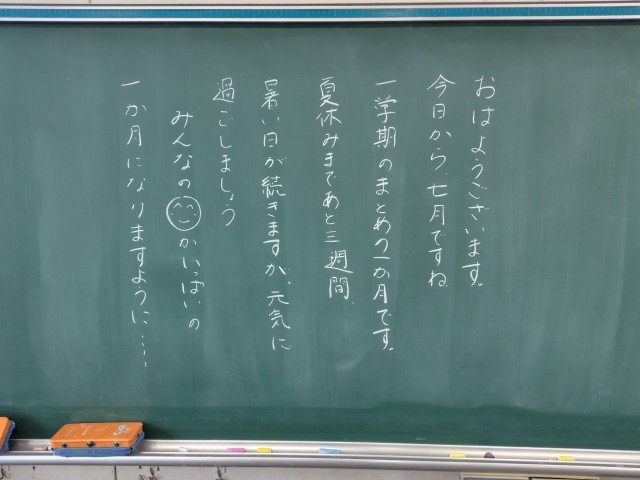 おはようございます。
今日から、七月ですね
一学期のまとめの一か月です。
夏休みまであと三週間、
暑い日が続きますが、元気に
過ごしましょう
みんなの😊がいっぱいの
一か月になりますように…